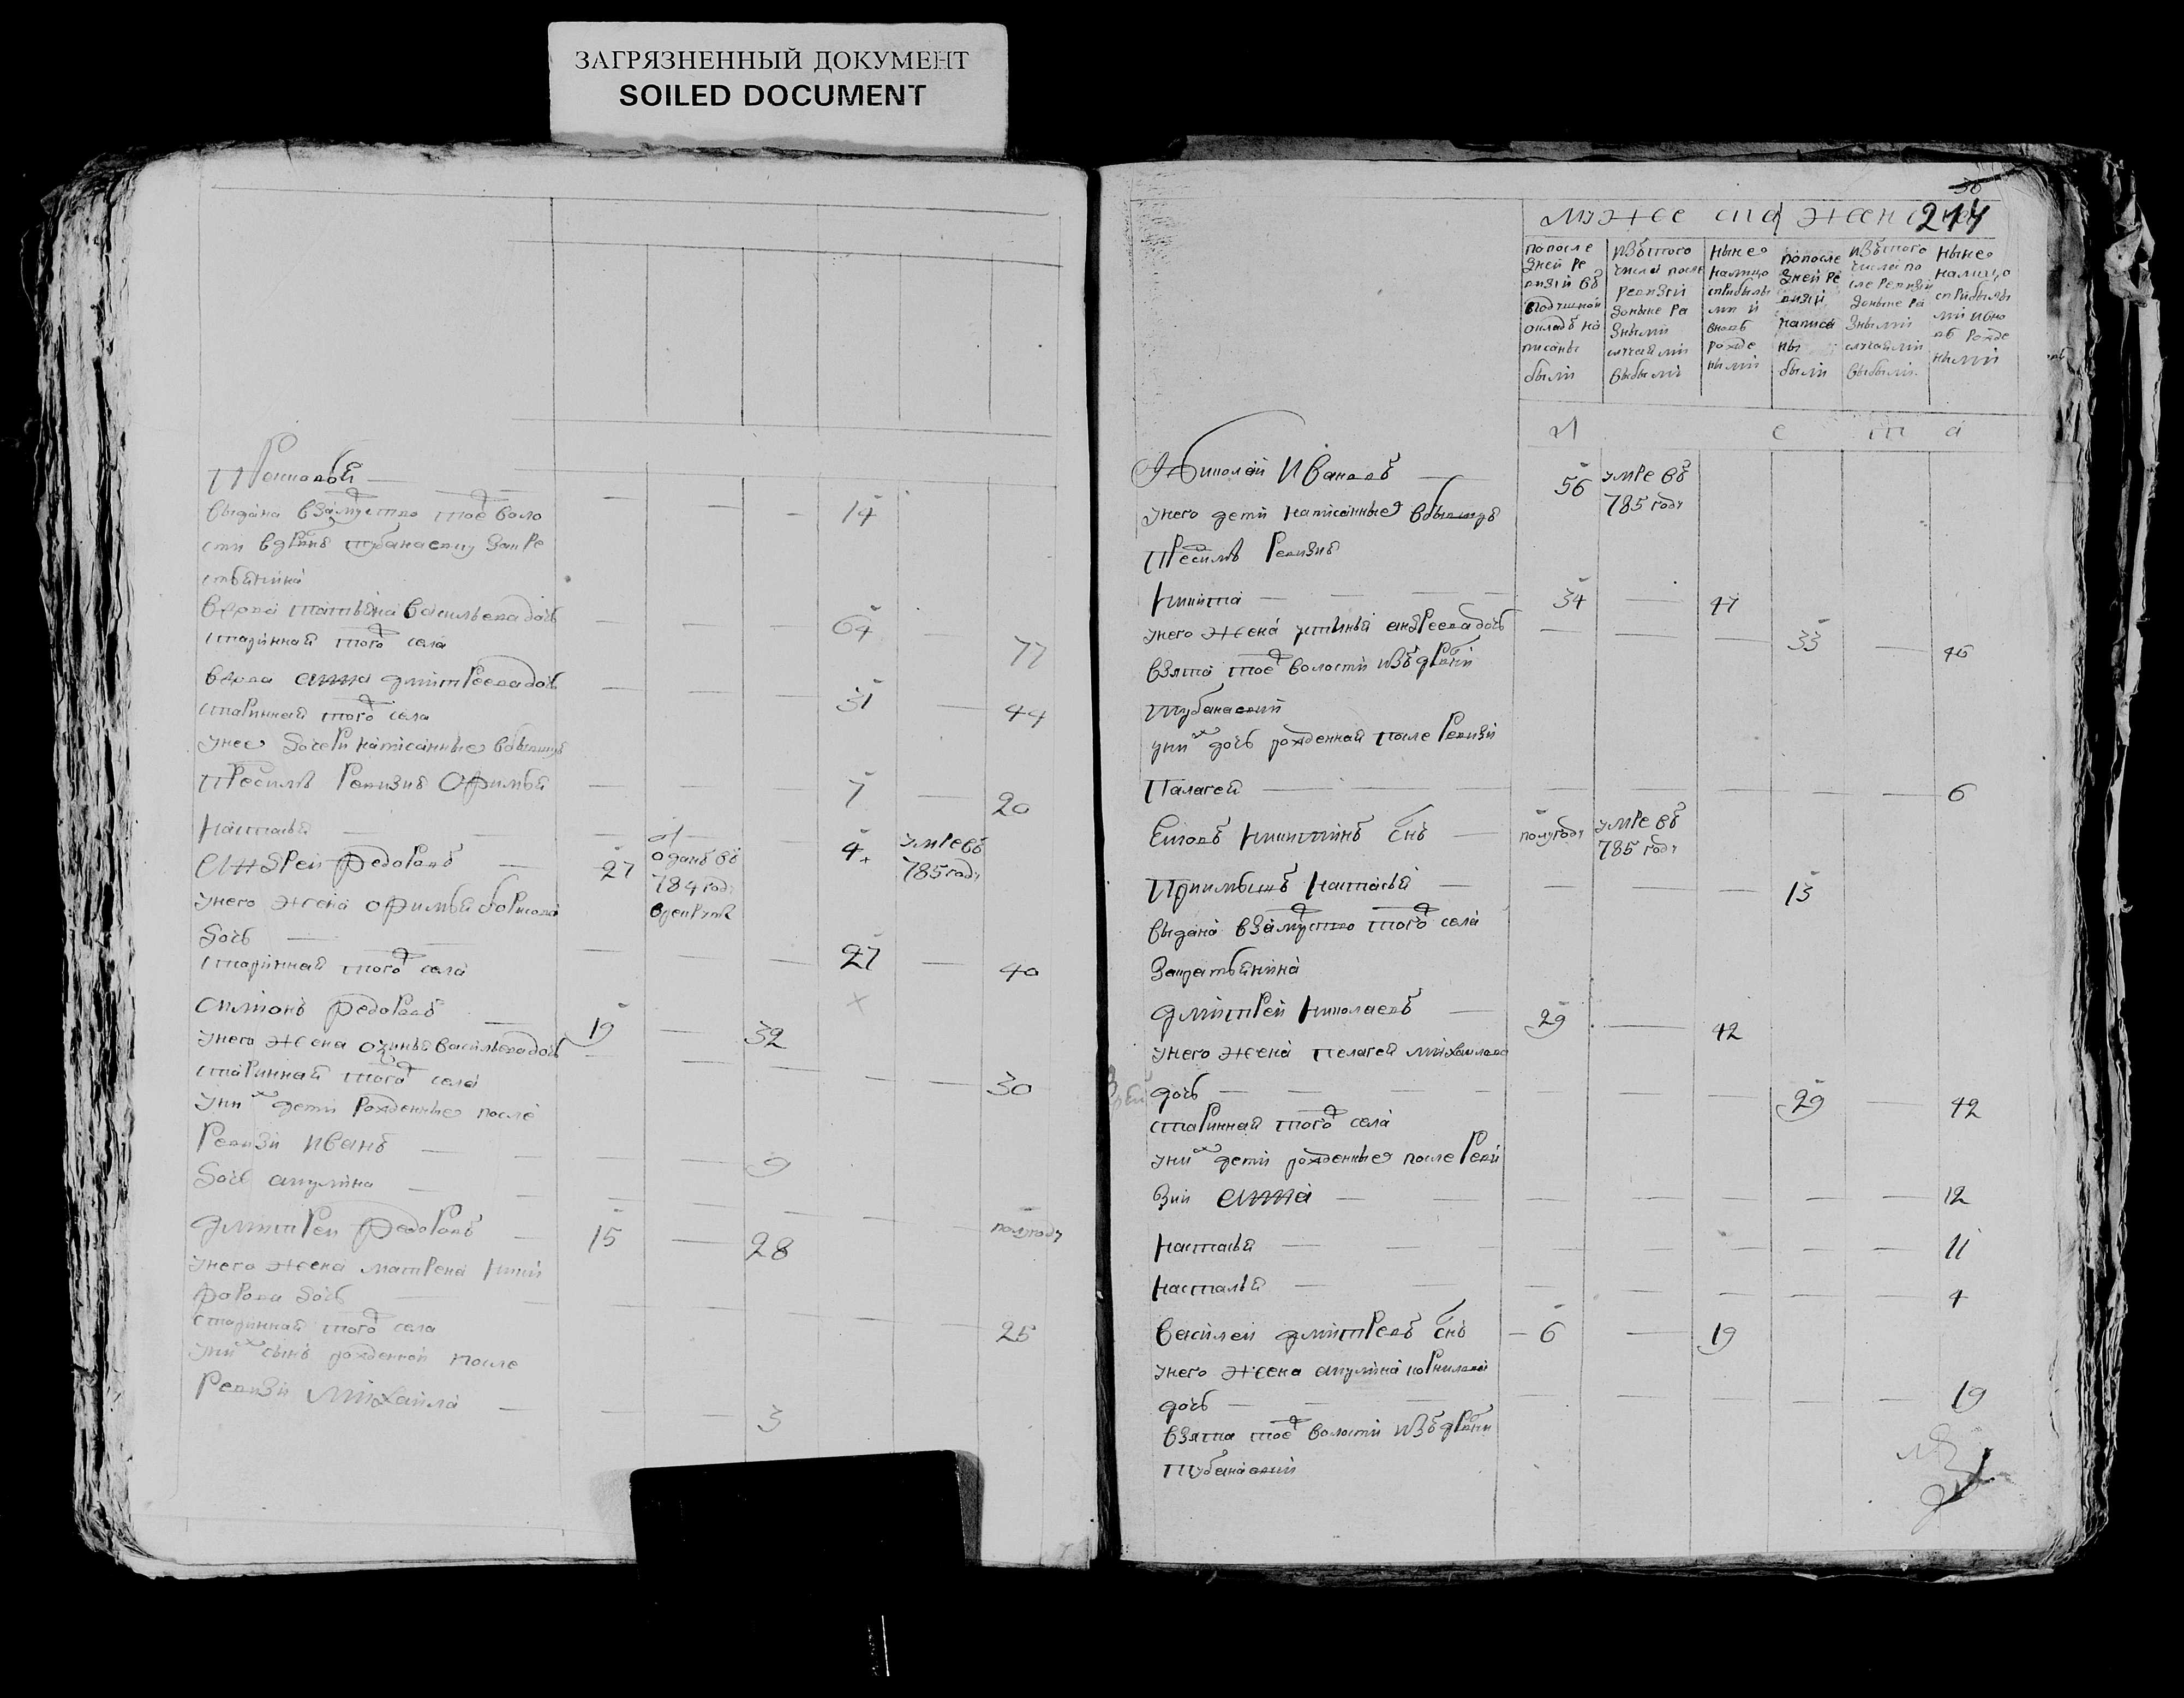 ЗАГРЯЗНЕННЫЙ ДОКУМЕНТ
SOILED DOCUMENT
Прасковья
выдана взамуство тоеж воло 14
сти вдрвню
ствянина
вдова татьяна васильева дочь 64 77
стариннай тогож села
вдова анна дмитреева дочь 31 44
стариннай тогож села
унее дочери написанные вбывшую
Пресилъ ревизию Офимья 7 20
настасья 4 умре въ 785 году
Андреи федоровъ 27 одданъ въ 784 году врекруты
унего жена офимья борисова
дочь 27 40
стариннай тогож села
симионъ федоровъ 19 32
унего жена васильева дочь 30
стариннай тогож села
уних дети рожденные после
ревизи иванъ 9
дочь акулина полугоду
дмитреи федоровъ 15 28
унего жена матрена ники
форова дочь 25
стариннай тогож села
уних сынъ рожденной после
ревизи михаила 3
30
217
мужеска женска
попосле дней ре визии въ подушной окладъ на писаны были
изътого числа после ревизии доныне ра зными случаями выбыли
ныне налицо сприбылы ми и вновь рожде ными
попосле дней ре визии написа ны были
изътого числа по сле ревизии доныне ра зными случаями выбыли
ныне налицо сприбылы ми ивно вь рожде ными
л е т а
Николай Ивановъ 56 умре въ 785 году
унего дети написанные вбывшую
Пресилъ ревизию
Никита 34 47
унего жена устинья андреева дочь 33 46
взята тоеж волости изъ дрвни
тубанаевки
уних дочь рожденная после ревизи
Палагея 6
Егоръ Никитинъ снъ полугоду умре въ 785 году
настасья 13
выдана взамуство тогож села
дмитрей николаевъ 29 42
унего жена пелагея михаилова
дочь 29 42
стариннай тогож села
уних дети рожденные после реви
зии анна 12
настасья 11
наталья 4
василеи дмитревъ снъ 6 19
унего жена акулина корнилова
дочь 19
взята тоеж волости изъ дрвни
тубанаевки